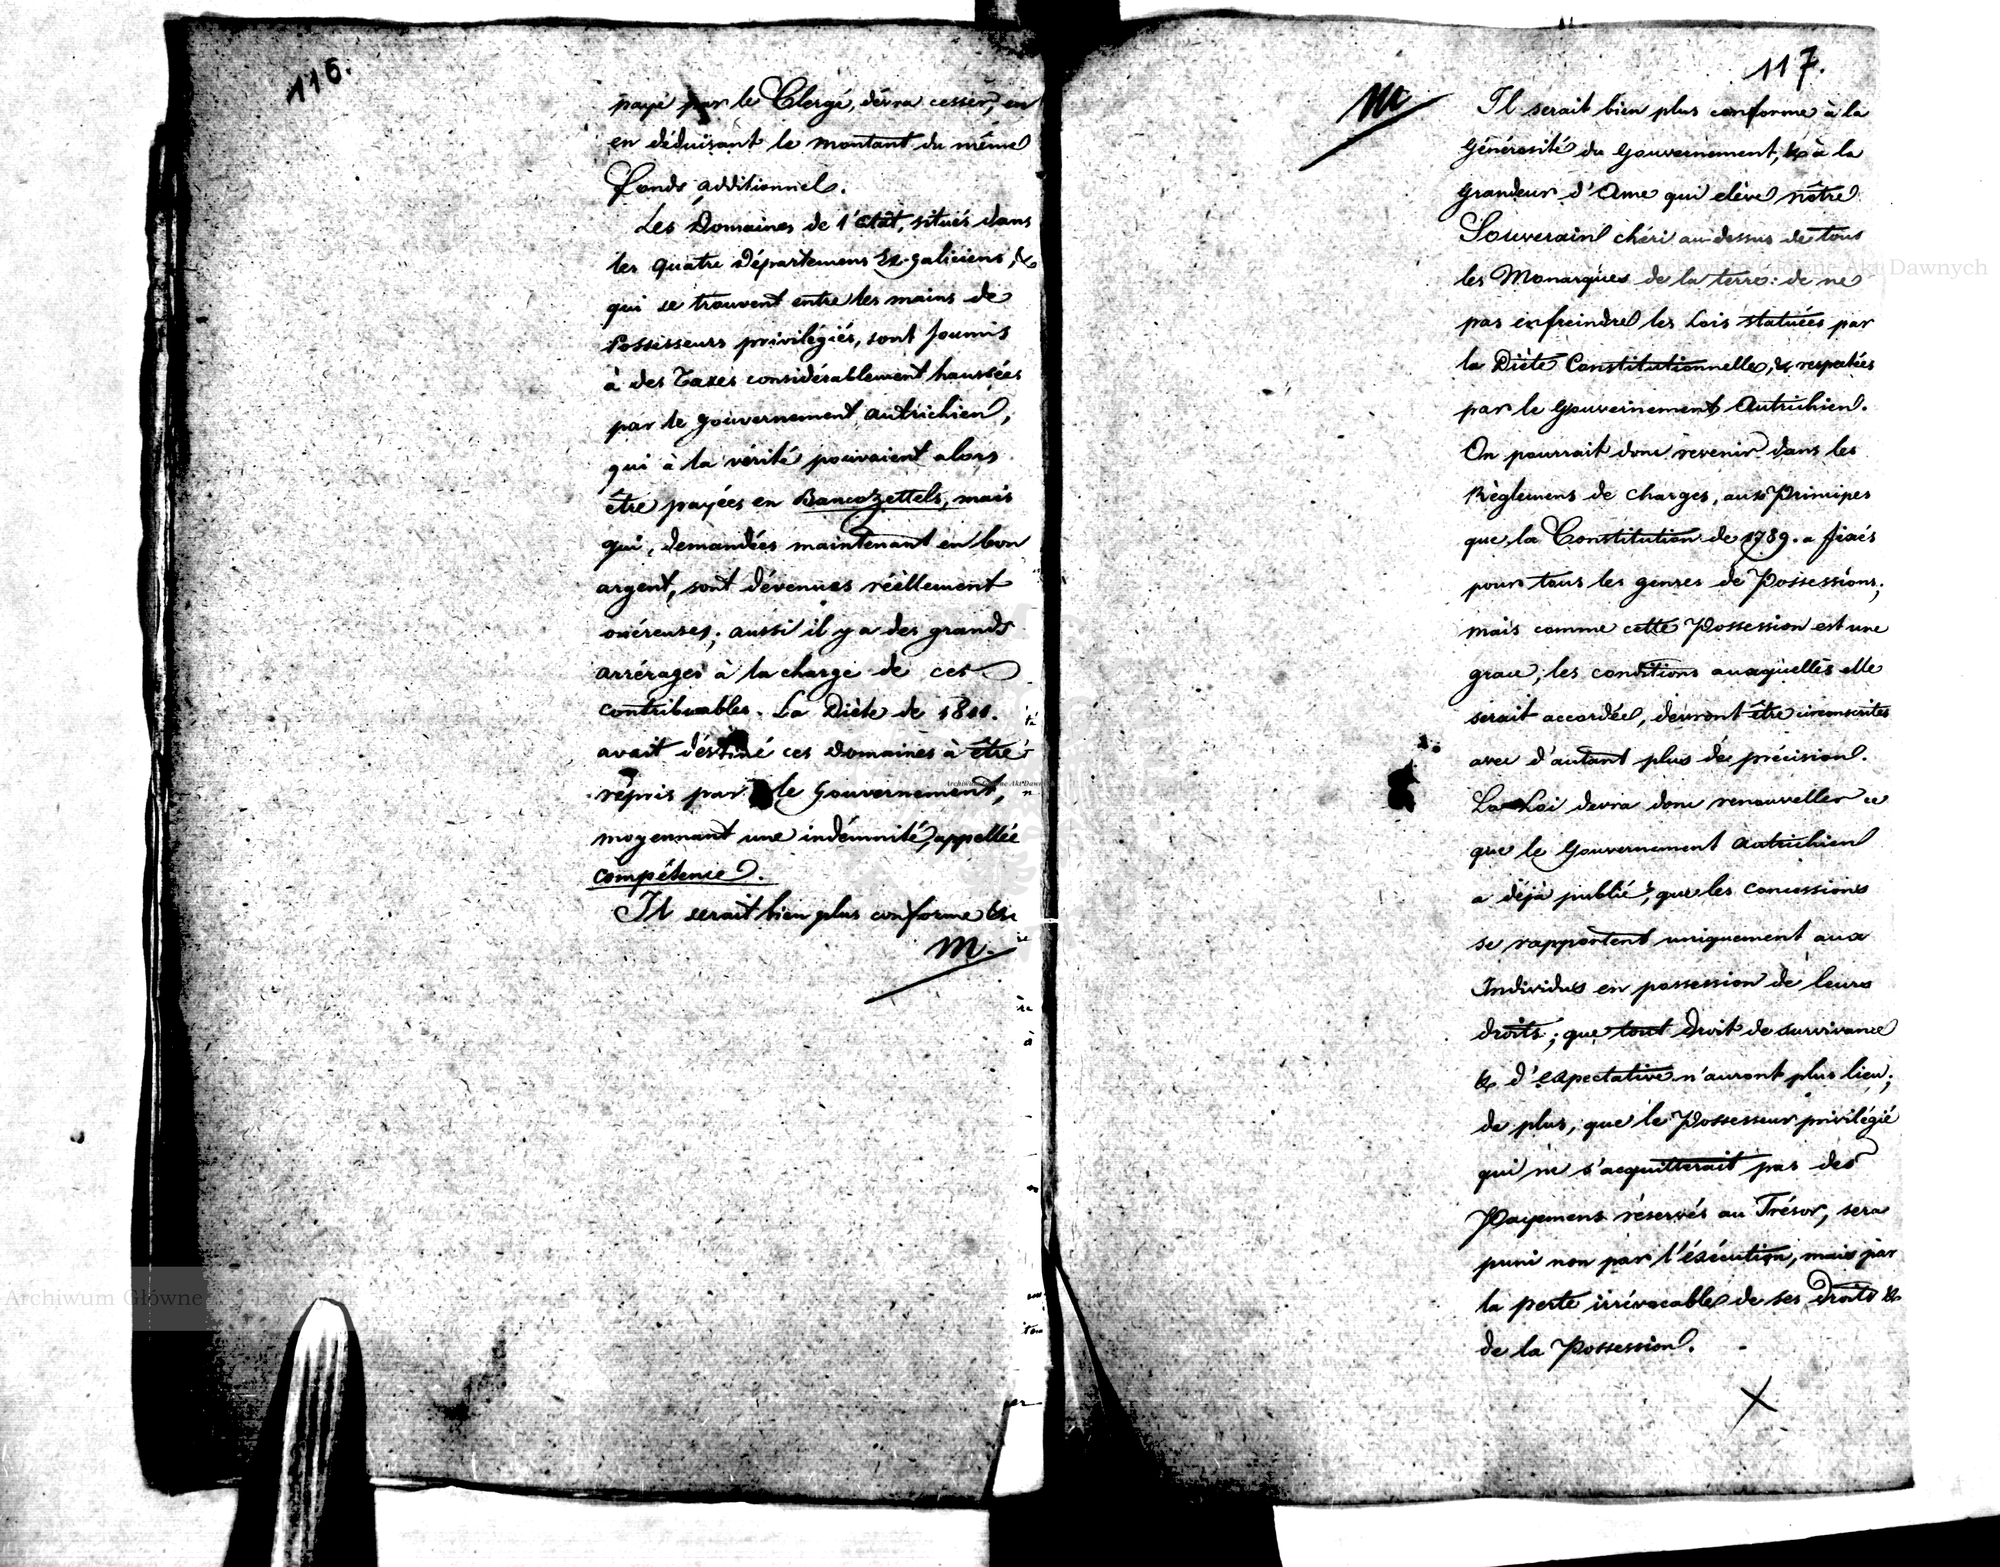 116.
payé par le Clergé, dévra cesser, en
en déduisant le montant du même
Fonds additionnel.
Les Domaines de l'état, situés dans
les quatre départemens Ex-galiciens, &
qui se trouvent entre les mains de
Possesseurs privilégiés, sont soumis
à des Taxes considérablement haussées
par le gouvernement autrichien,
qui à la vérité pouvaient alors
être payées en Bancozettels, mais
qui, demandées maintenant en bon
argent, sont dévenues réèllement
onéreuses; aussi il y a des grands
arrérages à la charge de ces
contribuables. La Diète de 1811.
avait déstiné ces Domaines à être
répris par le Gouvernement,
moyennant une indémnité, appellée
compétence.
Il serait bien plus conforme &c
M.
117.
M
Il serait bien plus conforme à la
Générosité du Gouvernement, & à la
grandeur d'Ame qui elève nôtre
Souverain chéri au dessus de tous
les Monarques de la terre: de ne
pas enfreindre les Lois statuées par
la Diète Constitutionnelle, & respectées
par le Gouvernement Autrichien.
On pourrait donc revenir dans les
Règlemens de charges, aux Principes
que la Constitution de 1789. a fixés
pour tous les genres de Possessions;
mais comme cette Possession est une
grace, les conditions auxquelles elle
serait accordée, devront être circonscrites
avec d'autant plus de précision.
La Loi devra donc renouveller ce
que le Gouvernement Autrichien
a déjà publié, que les Concessions
se rapportent uniquement aux
Individus en possession de leurs
droits; que tout Droit de survivance
& d'expectative n'auront plus lieu;
de plus, que le Possesseur privilégié
qui ne s'acquitterait pas des
Payemens réservés au Trésor, sera
puni non par l'éxécution, mais par
la perte irrévocable de ses Droits &
de la Possession.
Archiwum Główne Akt Dawnych